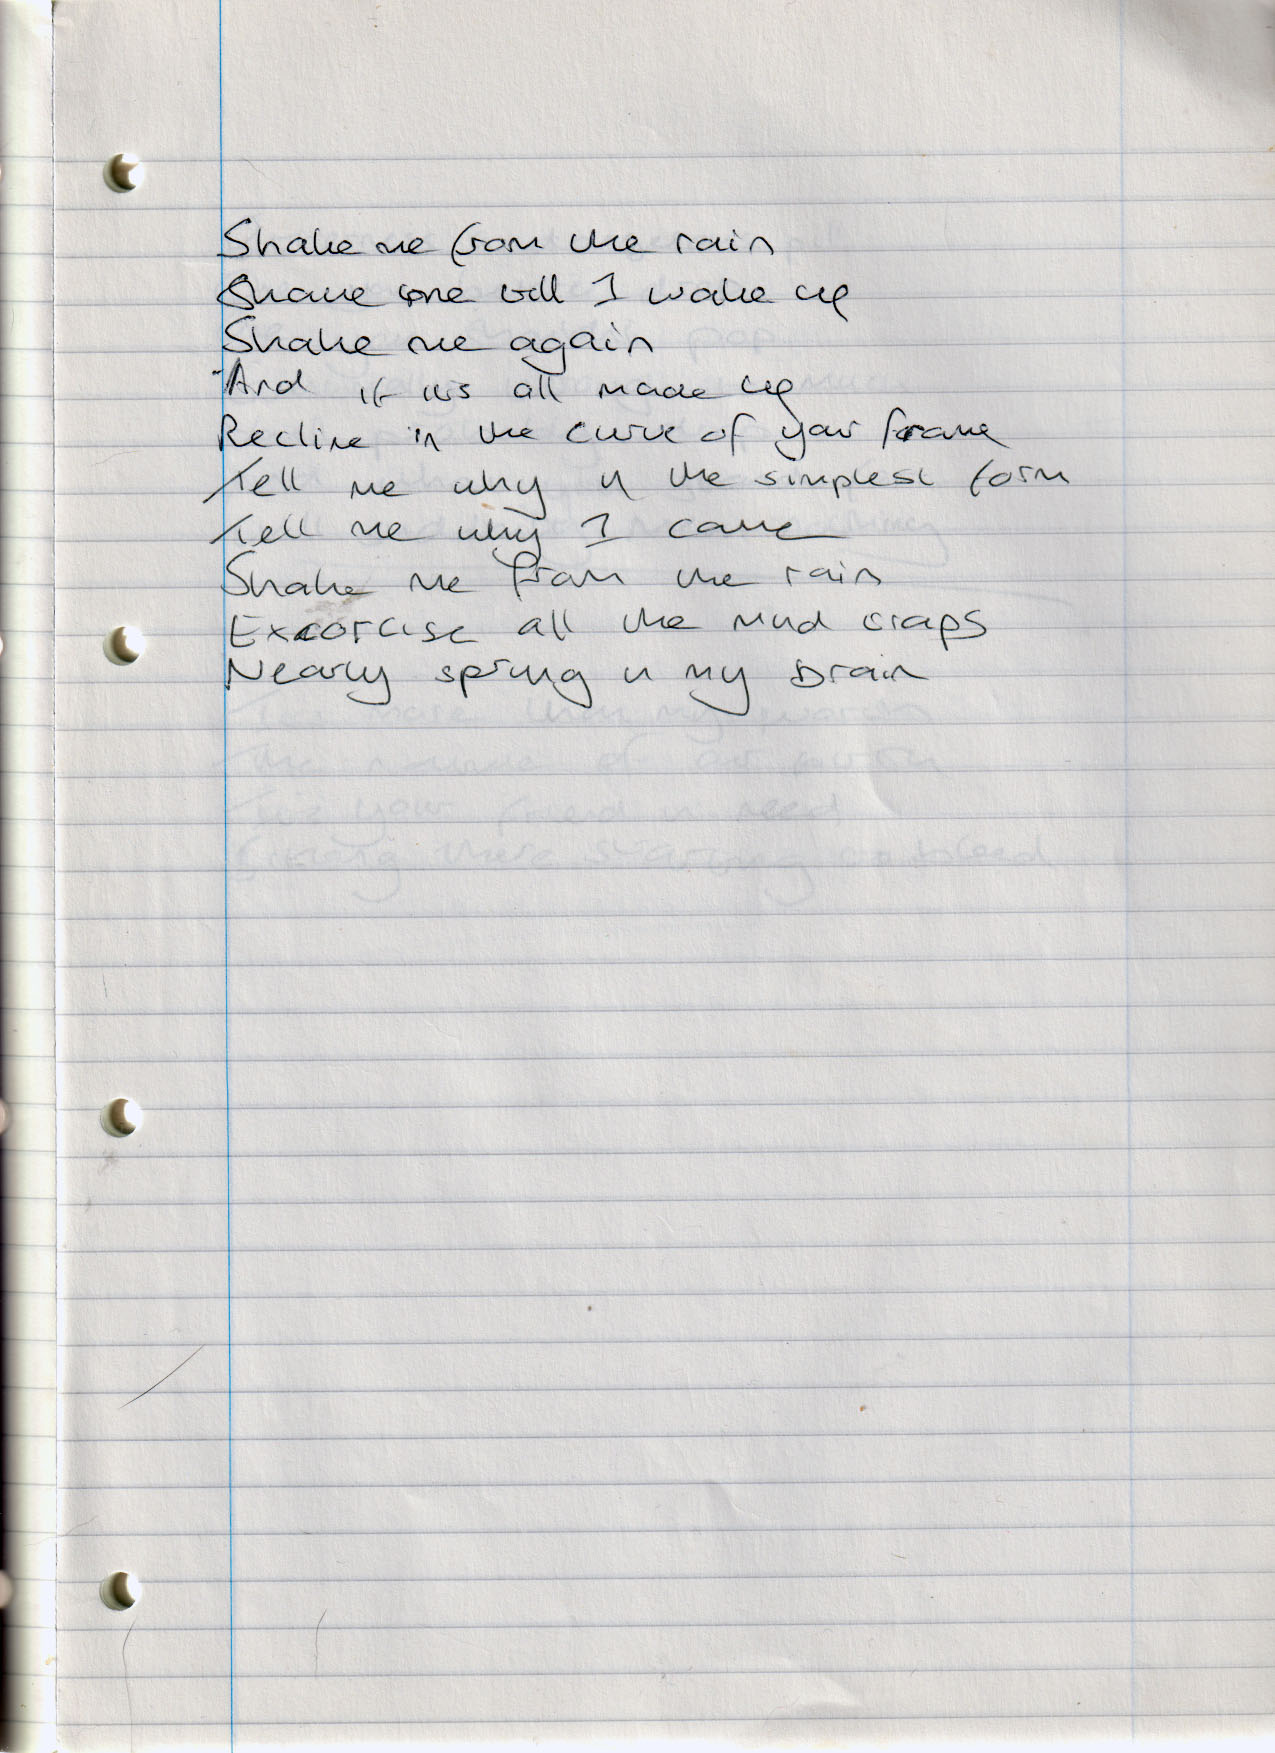 Shake me from the rain
Shake me till I wake up
Shake me again
And if its all made up
Recline in the curve of your frame
Tell me why in the simplest form
Tell me why I came
Shake me from the rain
Excorcise all the mud craps
Nearly spring in my brain